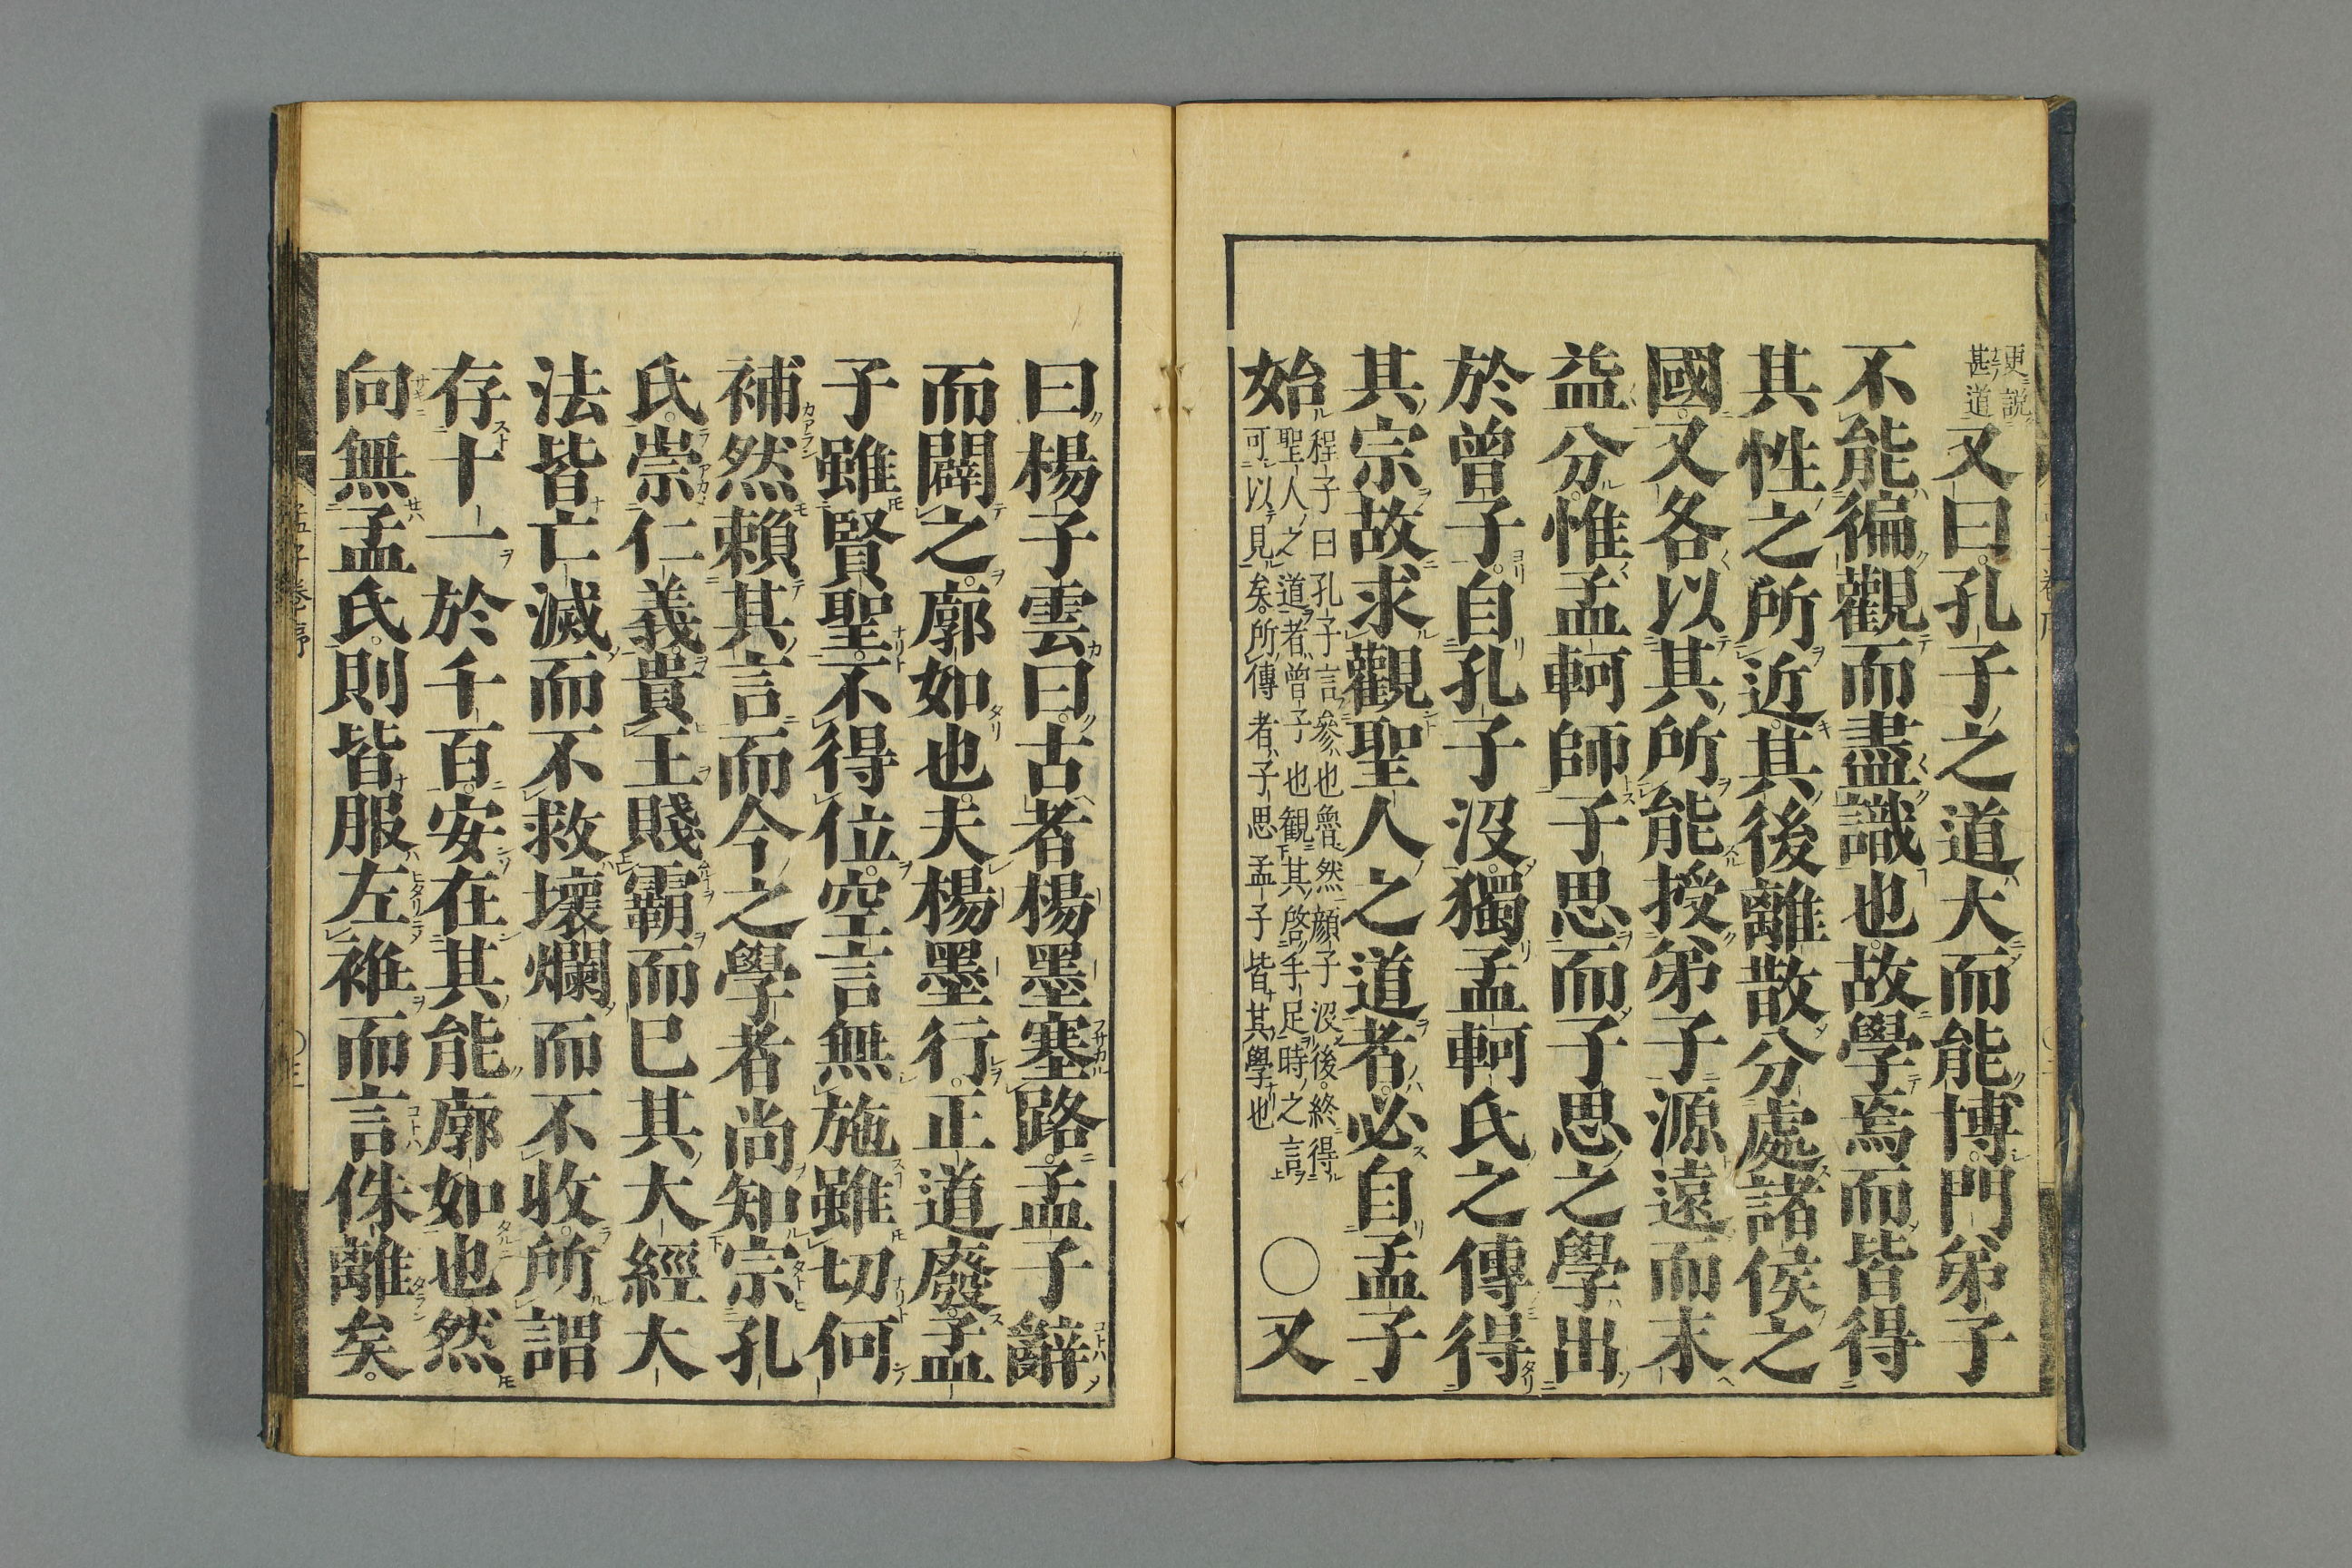 更説
甚道
又曰孔子之道大而能博門弟子
不能徧觀而盡識也故學焉而皆得
其性之所近其後離散分處諸侯之
國又各以其所能授弟子源遠而末
益分惟孟軻師子思而子思之學出
於曾子自孔子沒獨孟軻氏之傳得
其宗故求觀聖人之道者必自孟子
始
程子曰孔子言參也魯然顔子沒後終得
聖人之道者曾子也観其啓手足時之言
可以見矣所傳者子思孟子皆其學也
○又
曰楊子雲曰古者楊墨塞路孟子辭
而闢之廓如也夫楊墨行正道廢孟
子雖賢聖不得位空言無施雖切何
補然賴其言而今之學者尚知宗孔
氏崇仁義貴王賤霸而已其大經大
法皆亡滅而不救壞爛而不收所謂
存十一於千百安在其能廓如也然
向無孟氏則皆服左袵而言侏離矣
孟子卷序